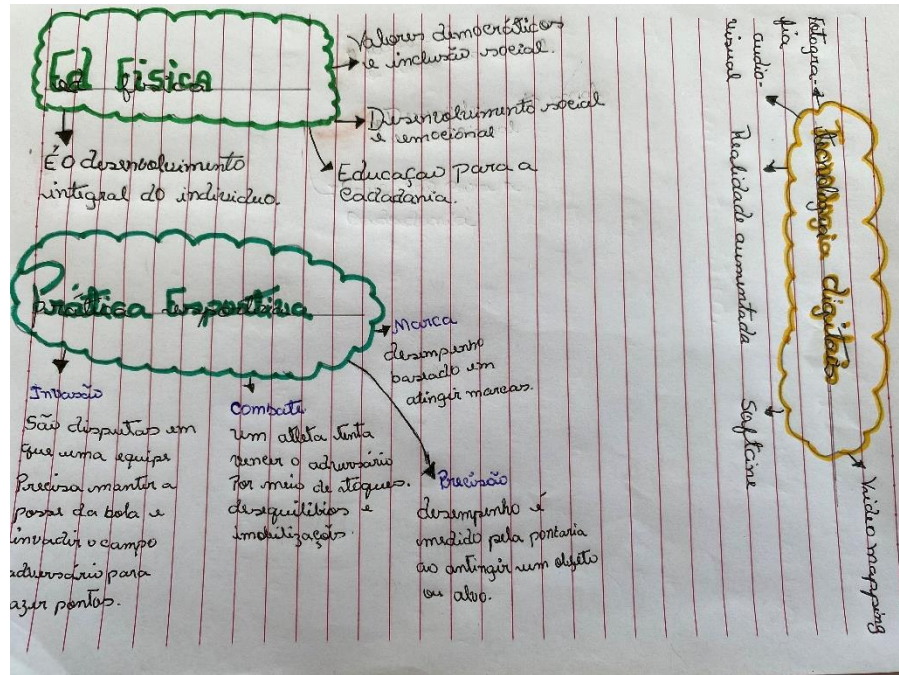 Ed física
Valores democráticos
e inclusão social.
Desenvolvimento social
e emocional
Educação para a
Cadadania.
É O desenvolvimento
integral do individuo.
Prática Esportiva
Marca
desempenho
baseado em
atingir marcas.
Invasão
São disputas em
que uma equipe
Precisa manter a
posse da bola e
invadir o campo
adversário para
azer pontos.
Combate
um atleta tenta
vencer o adversário
Por meio de toques.
desequilíbios e
imobilizações.
Precisão
desempenho é
medido pela pontaria
ao antingir um objeto
ou alvo.
tecnologia digitais
Fotogra-
fia
audio-
visual
Realidade aumentada
Softcine
Video mapping